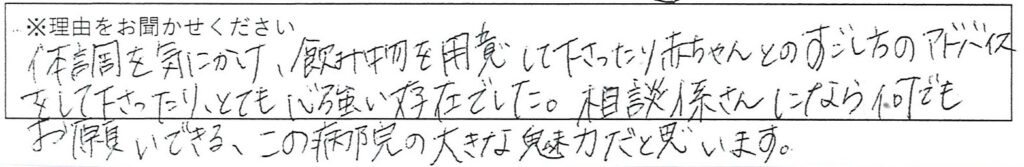 ※理由をお聞かせください
体調を気にかけ、飲み物を用意して下さったり赤ちゃんとのすごし方のアドバイス
をして下さったり、とても心強い存在でした。相談係さんになら何でも
お願いできる、この病院の大きな魅力だと思います。